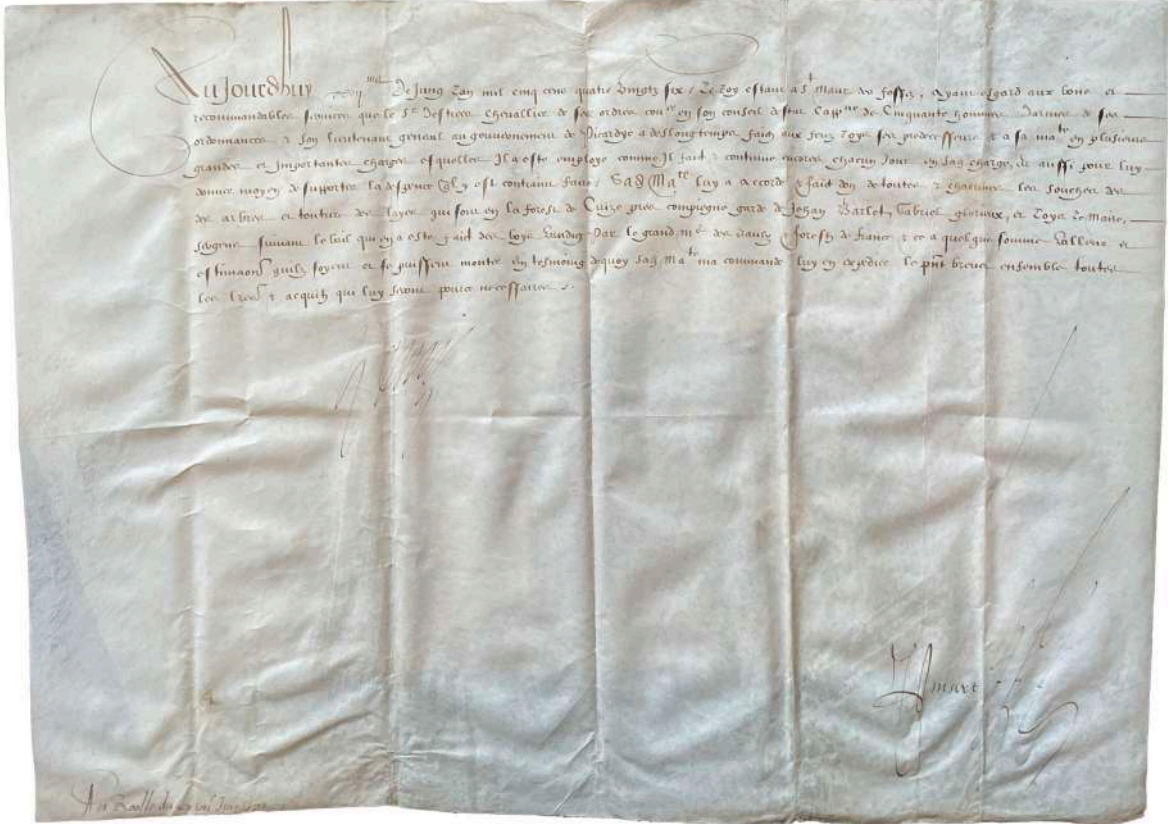 Aujourdhuy xxvj me De Juing Lan mil cinq cens quatre vingtz six / Le Roy estant a St Maur des fossez, Ayant esgard aux bons et
recommandables services que le Sr Destrees Chevallier de ses ordres coner en son conseil destat Cappne de Cinquante hommes Darmes de ses
ordonnances & son lieutenant general au gouvernement de Picardye a deslongtemps faictz aux feuz Roys ses predecesseurs & a sa mate en plusieurs
grandes et Importantes charges esquelles Il a este employe comme Il fait & continue encores chacun Jour en sad charge, et aussi pour luy
donner moyen de supporter la despence quil y est contrainct faire / Sad Mate luy a accorde & fait don de toutes & chacunes les souches des
des arbres et des layes qui sont en la forest de Cuize pres compiegne garde de Jehan Barlet, Gabriel et Roye Le Maire,
suivant le bail qui en a este fait des boys venduz Par le grand me des eaues & forestz de france & ce a quelque somme valleur et
estimaon quilz soyent et se puissent monter En tesmoing dequoy sad Mate ma commande luy en expedier le pnt brevet ensemble toutes
les lres & acquitz qui luy seront pource necessaires .